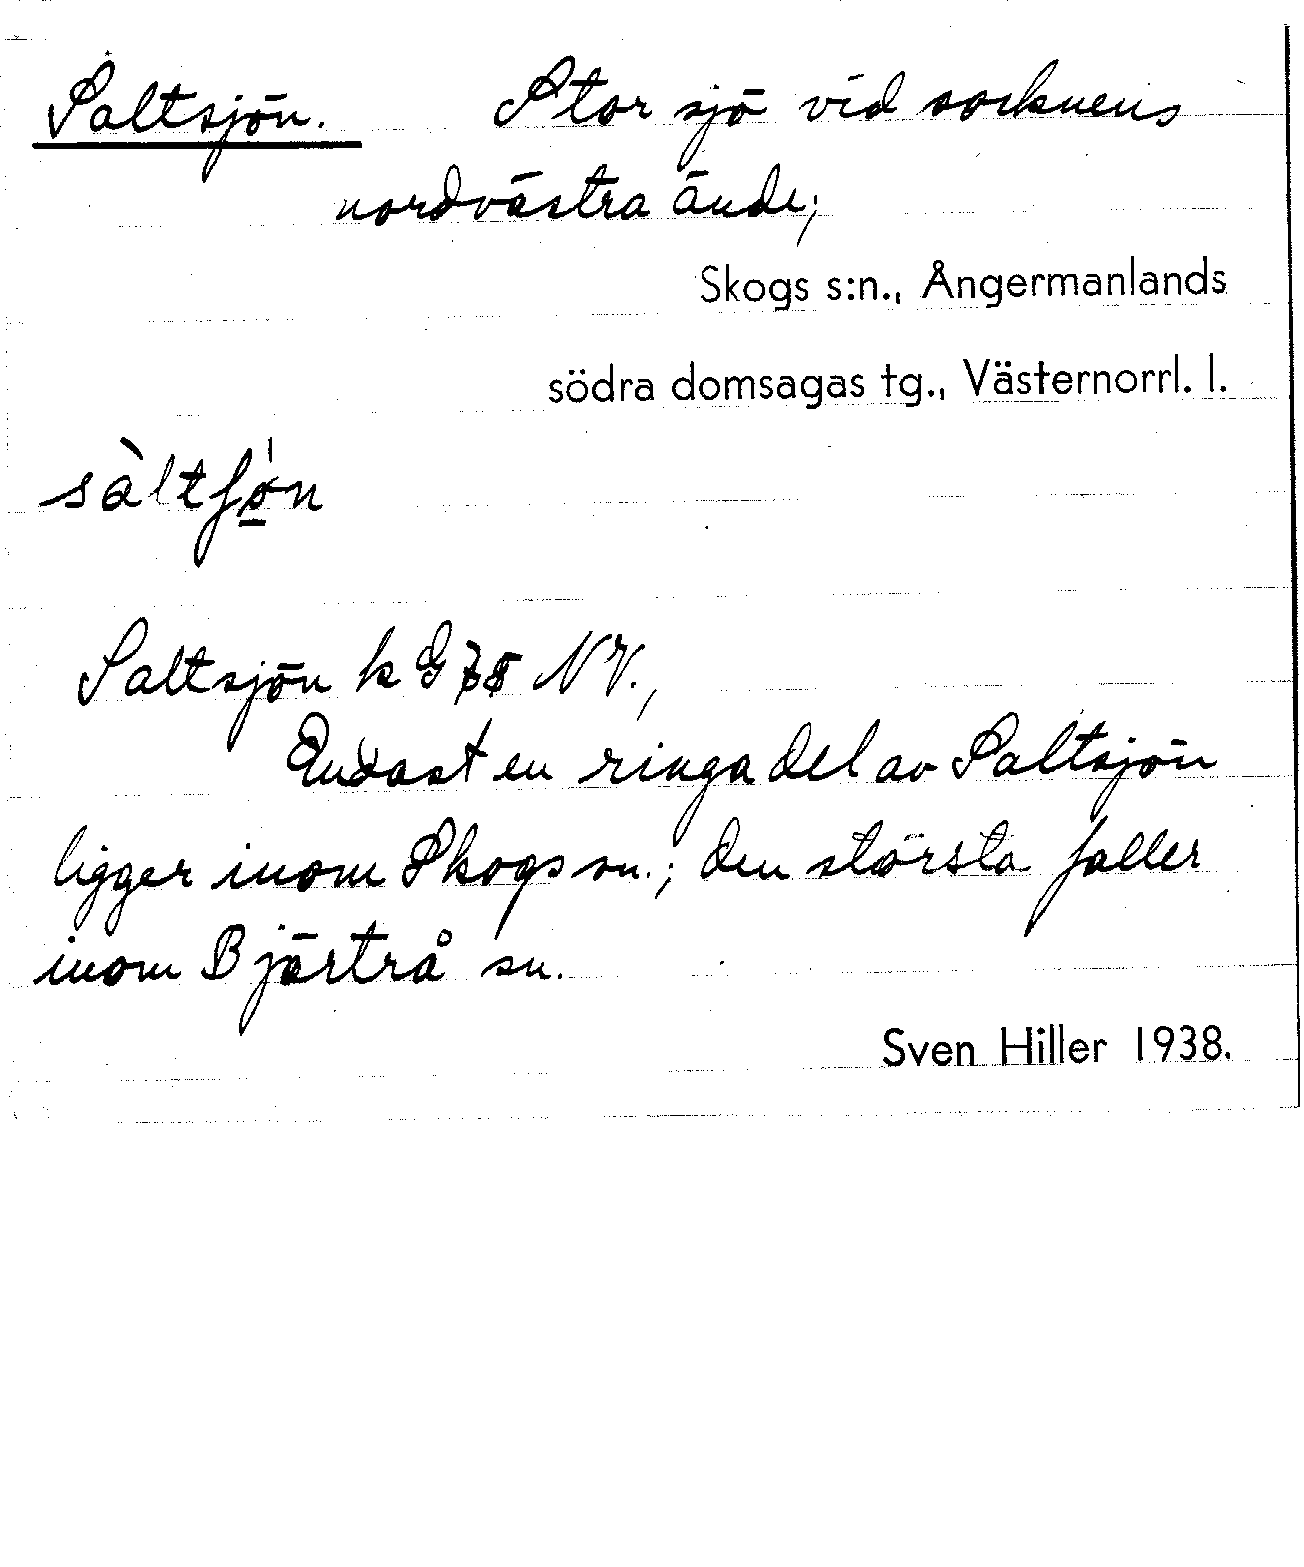 Saltsjön. Stor sjö vid socknens
nordvästra ände;
Skogs s:n., Ångermanlands
södra domsagas tg., Västernorrl. l.
Saltsjön k G NV.,
Endast en ringa del av Saltsjön
ligger inom Skogs sn.; den största faller
inom Bjärtrå sn.
Sven Hiller 1938.